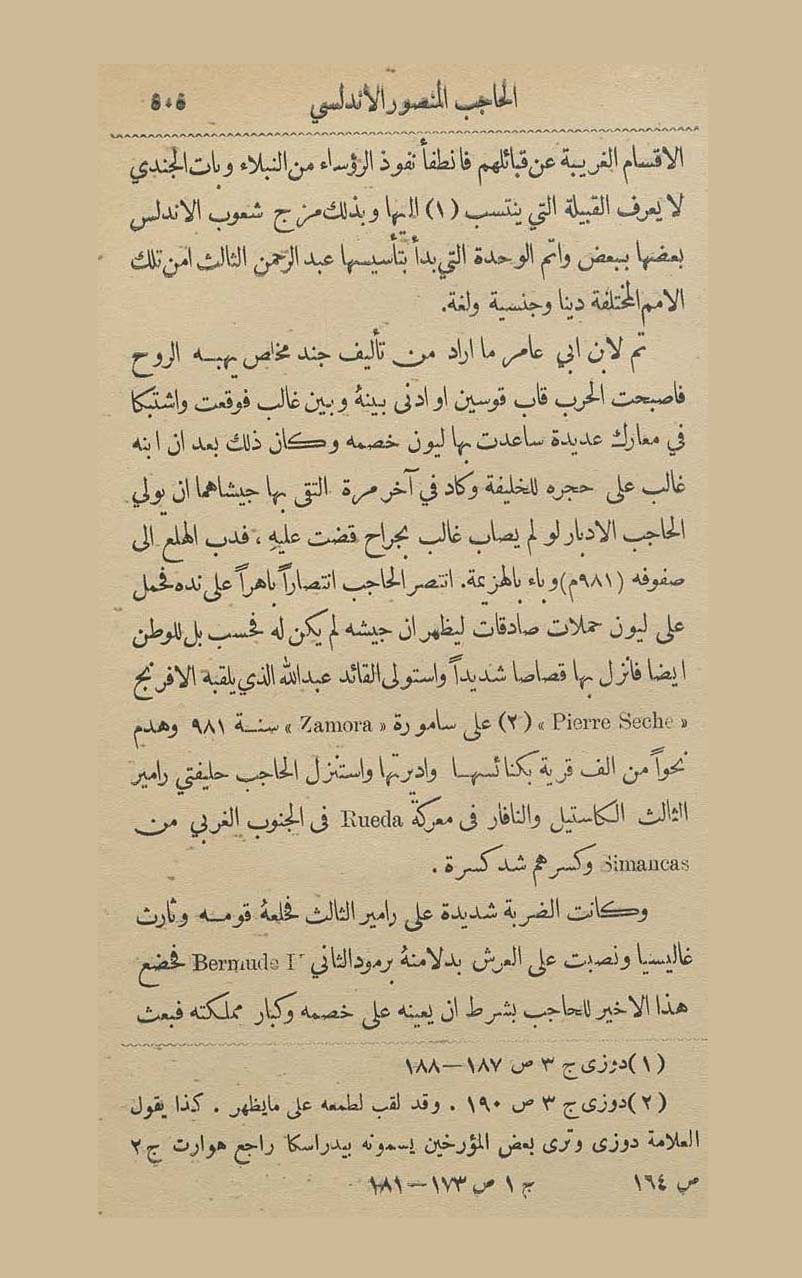 الحاجب المنصور الاندلسي
الاقسام الغريبة عن قبائلهم فانطفأ نفوذ الرؤساء من النبلاء وبات الجندي
لا يعرف القبيلة التي ينتسب (١) اليها وبذلك مزج شعوب الاندلس
بعضها ببعض واتم الوحدة التي بدأ بتأسيسها عبد الرحمن الثالث من تلك
الامم المختلفة دينا وجنسية ولغة.
تم لابن ابي عامر ما اراد من تأليف جند مخلص يهبه الروح
فاصبحت الحرب قاب قوسين او ادنى بينهُ وبين غالب فوقعت واشتبكا
في معارك عديدة ساعدت بها ليون خصمه وكان ذلك بعد ان ابنه
غالب على حجره للخليفة وكاد في آخر مرة التقى بها جيشاهما ان يولي
الحاجب الادبار لو لم يصاب غالب بجراح قضت عليهِ ، فدب الهلع الى
صفوفه (٩٨١م) وباء بالهزيمة. انتصر الحاجب انتصاراً باهراً على نده فحمل
على ليون حملات صادقات ليظهر ان جيشه لم يكن له فحسب بل للوطن
ايضا فانزل بها قصاصا شديداً واستولى القائد عبدالله الذي يلقبه الافرنج
« Pierre Seche » (٢) على سامورة « Zamora » سنة ٩٨١ وهدم
نحواً من الف قرية بكنائسها واديرتها واستنزل الحاجب حليفتي رامير
الثالث الكاستيل والنافار فى معركة Rueda فى الجنوب الغربي من
Simancas وكسرهم شد كسرة .
وكانت الضربة شديدة على رامير الثالث فخلعهُ قومه وثارت
غاليسيا ونصبت على العرش بدلا منهُ برمود الثاني Bermude II فخضع
هذا الاخير للحاجب بشرط ان يعينه على خصمه وكبار مملكته فبعث
(١) دوزى ج ٣ ص ١٨٧—١٨٨
(٢) دوزى ج ٣ ص ١٩٠ . وقد لقب لطمعه على مايظهر . كذا يقول
العلامة دوزى وترى بعض المؤرخين يسمونه بيدراسكا راجع هوارت ج ٢
ص ١٦٤ ج ١ ص ١٧٣—١٨١